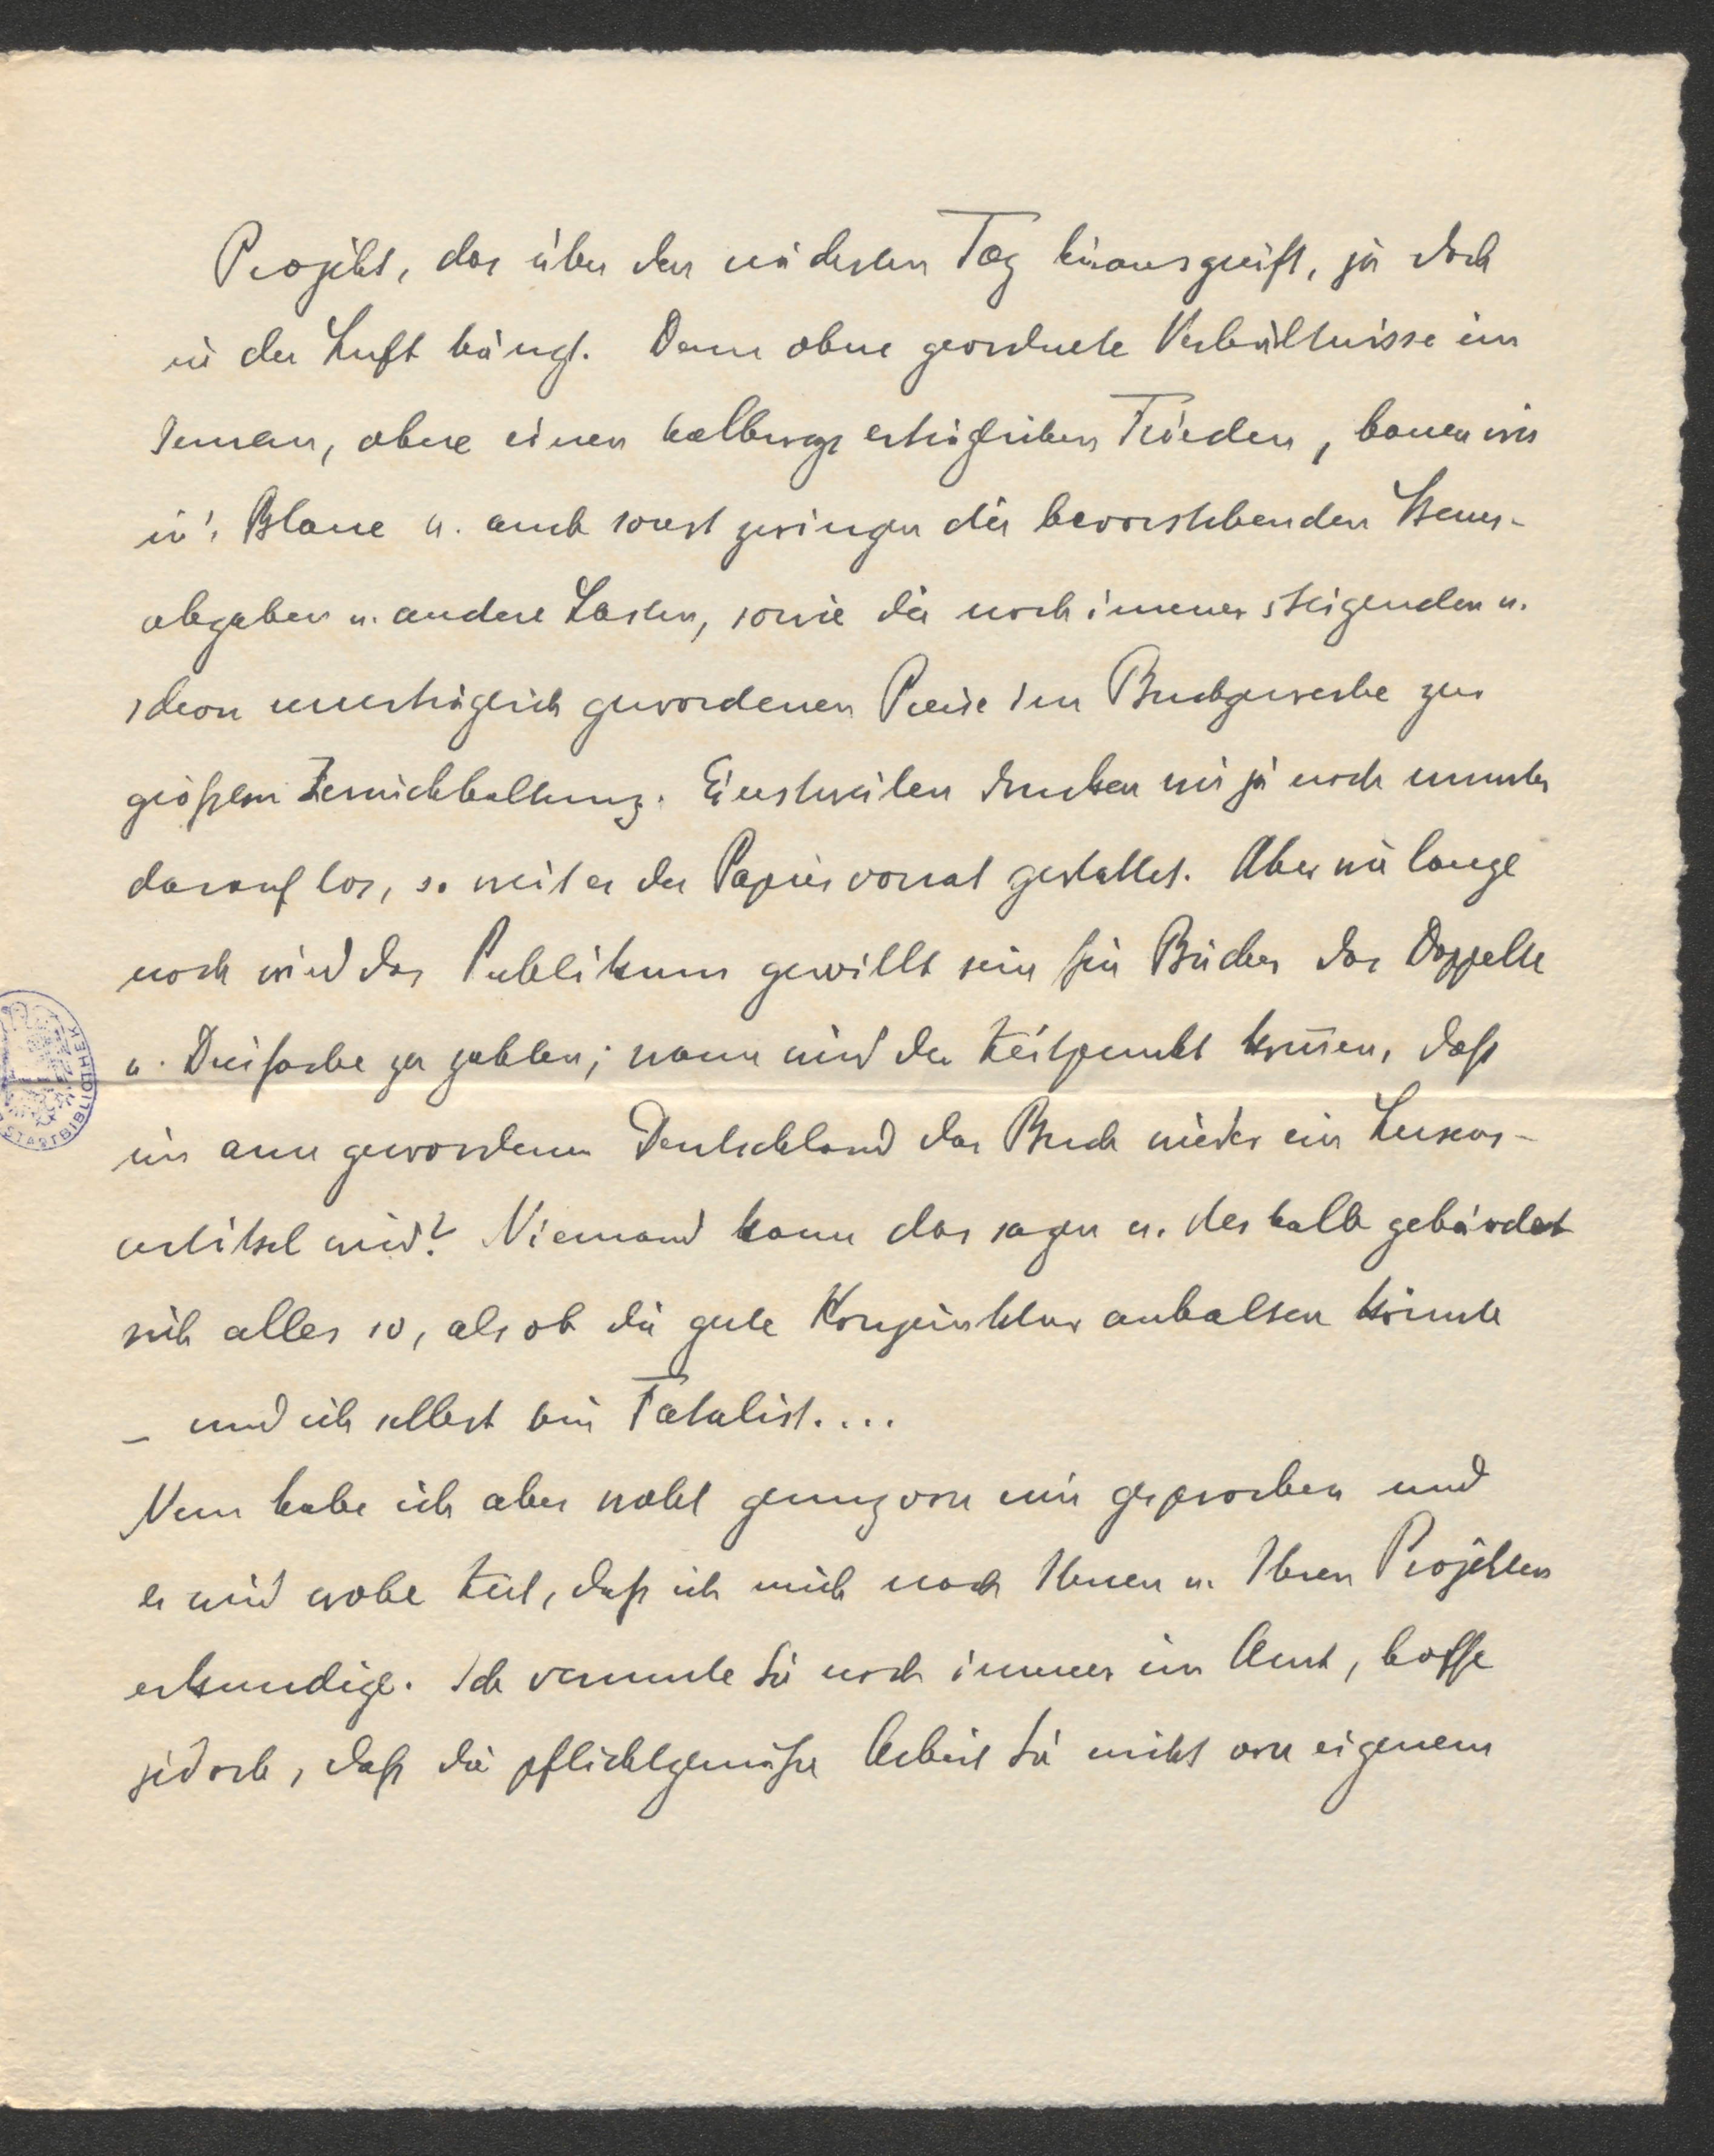 Projekt, das über den nächsten Tag hinausgreift, ja doch
in der Luft hängt. Denn ohne geordnete Verhältnisse im
Innern, ohne einen halbwegs erträglichen Frieden, bauen wir
in's Blaue u. auch sonst zwingen die bevorstehenden Steuer-
abgaben u. andere Lasten, sowie die noch immer steigenden u.
schon unerträglich gewordenen Preise im Buchgewerbe zur
größten Zurückhaltung. Einstweilen drucken wir ja noch munter
darauf los, so weit es der Papiervorrat gestattet. Aber wie lange
noch wird das Publikum gewillt sein für Bücher das Doppelte
u. Dreifache zu zahlen; wann wird der Zeitpunkt kom̅en, daß
im arm gewordenen Deutschland das Buch wieder ein Luxus-
artikel wird? Niemand kann das sagen u. deshalb gebärdet
sich alles so, als ob die gute Konjunktur anhalten könnte
– und ich selbst bin Fatalist....
Nun habe ich aber wohl genug von mir gesprochen und
es wird wohl Zeit, daß ich mich nach Ihnen u. Ihren Projekten
erkundige. Ich vermute Sie noch immer im Amt, hoffe
jedoch, daß die pflichtgemäße Arbeit Sie nicht von eigenem
STADTBIBLIOTHEK